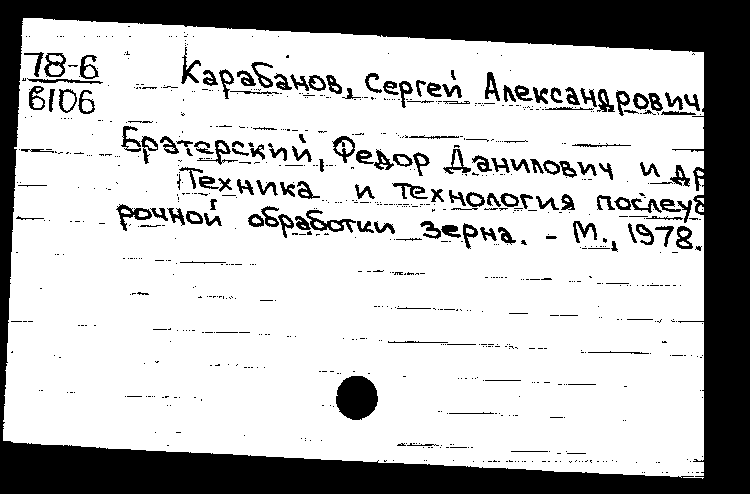 78-6
6106
Карабанов, Сергей Александрович.
Братерский, Федор Данилович и др
Техника и технология послеуб
рочной обработки зерна. - М., 1978.